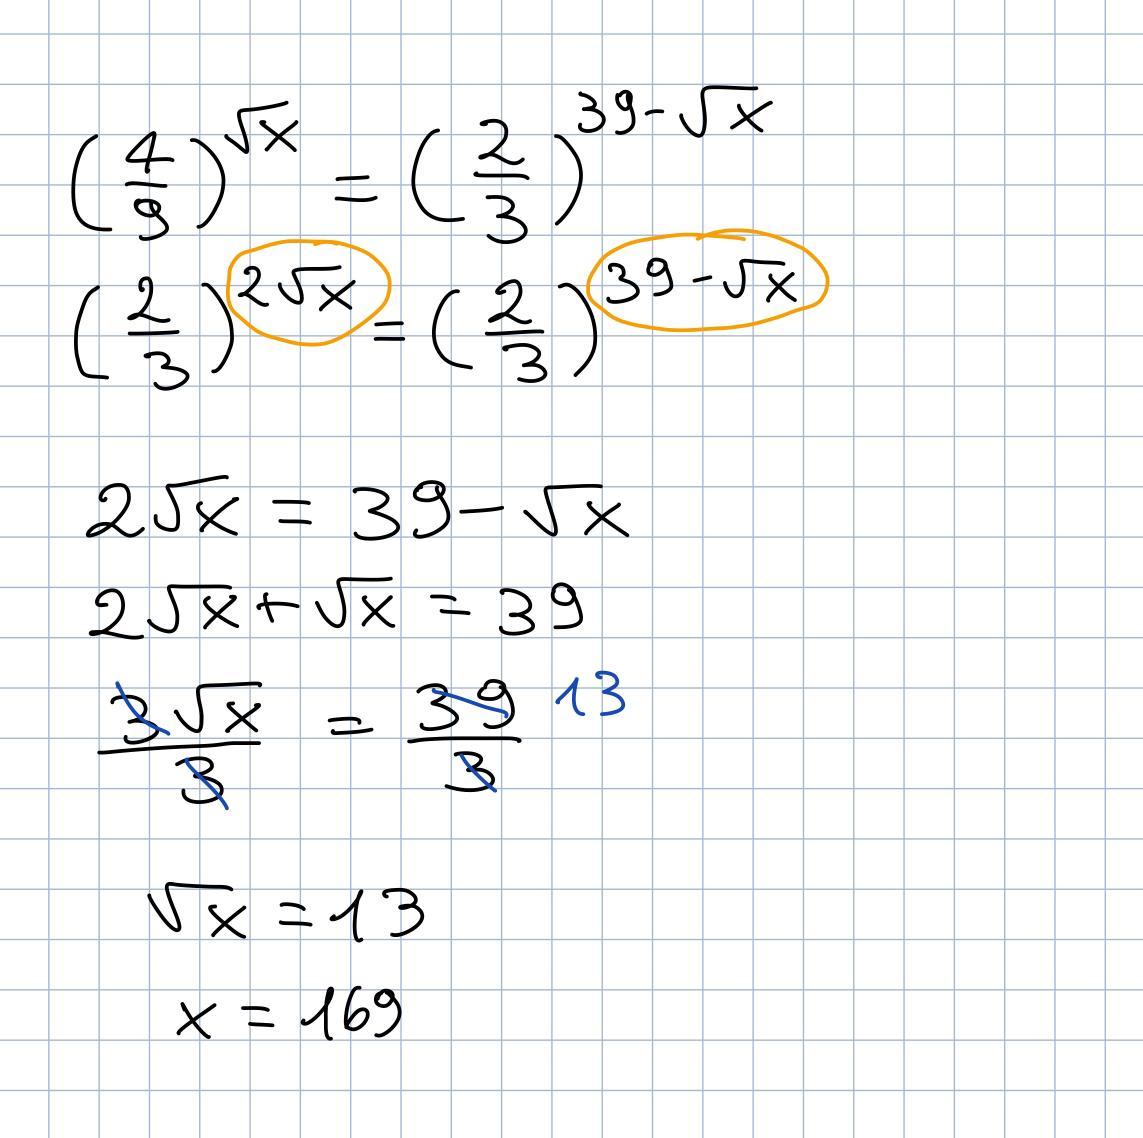 (4/9)^√x = (2/3)^39-√x
(2/3)^2√x = (2/3)^39-√x
2√x = 39-√x
2√x + √x = 39
3√x/3 = 39/3 13
√x = 13
x = 169